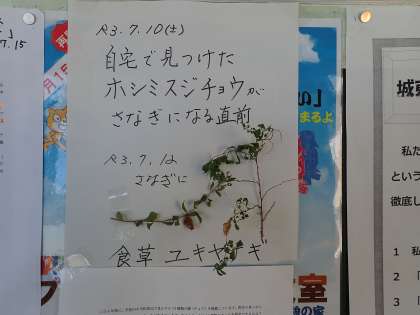 R3.7.10(土)
自宅で見つけた
ホシミスジチョウが
さなぎになる直前
R3.7.12
さなぎに
食草 ユキヤナギ
7.15
月1日
い」
まるよ
室
の家
城東
私た
という
徹底し
1 私
2 「
3 「